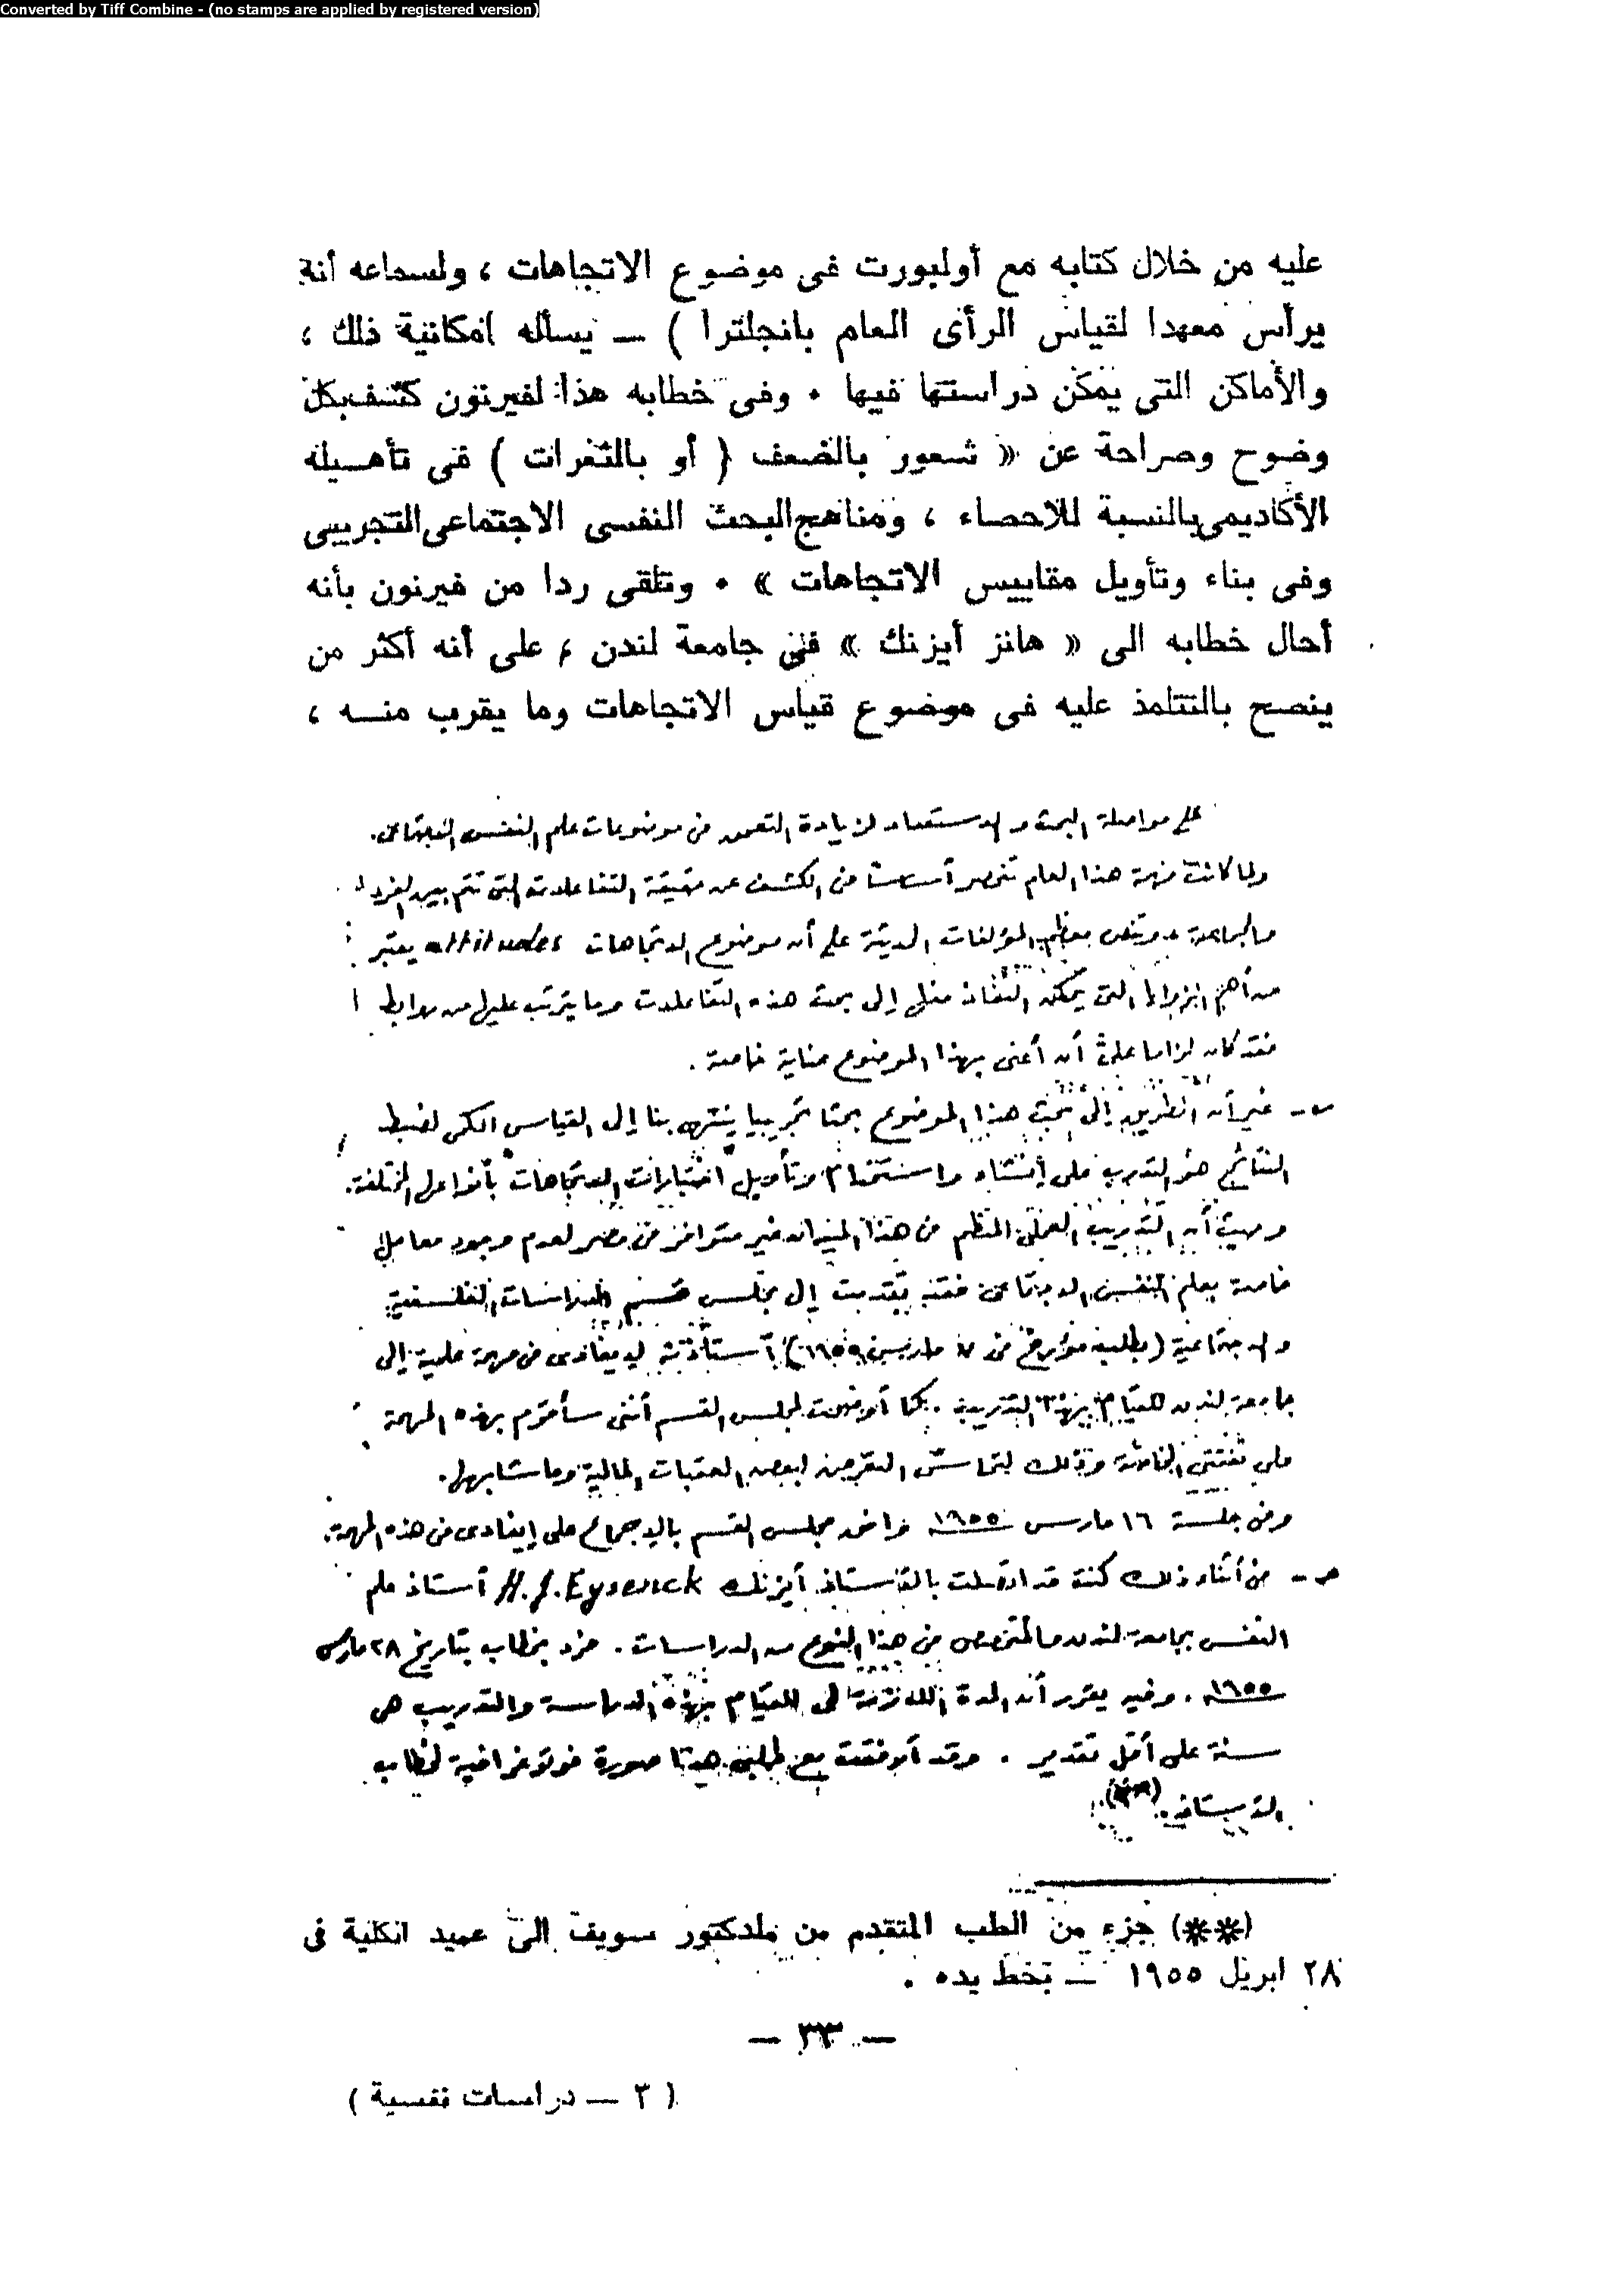 Converted by Tiff Combine - (no stamps are applied by registered version)
عليه من خلال كتابه مع أولبورت فى موضوع الاتجاهات ، ولسماعه أنه
يرأس معهدا لقياس الرأى العام بانجلترا ) — يسأله امكانية ذلك ،
والأماكن التى يمكن دراستها فيها . وفى خطابه هذا لفيرنون كشف بكل
وضوح وصراحة عن « شعور بالضعف ( أو بالثغرات ) فى تأهيله
الأكاديمى بالنسبة للاحصاء ، ومناهج البحث النفسى الاجتماعى التجريبى
وفى بناء وتأويل مقاييس الاتجاهات » . وتلقى ردا من فيرنون بأنه
أحال خطابه الى « هانز أيزنك » فى جامعة لندن ، على أنه أكثر من
ينصح بالتتلمذ عليه فى موضوع قياس الاتجاهات وما يقرب منه ،
على مواصلة البحث والاستعداد لزيادة التعمق فى موضوعات علم النفس الاجتماعى .
ولما كانت مهمة هذا العلم تنحصر أساسا فى الكشف عن حقيقة التفاعلات التى تتم بين الفرد
والجماعة وتنص معظم المؤلفات الحديثة على أن موضوع الاتجاهات attitudes يعتبر
من أهم الزوايا التى يمكن النفاذ منها إلى بحث هذه التفاعلات وما يترتب عليها من روابط
فقد كان لزاما علىّ أن أعنى بهذا الموضوع عناية خاصة .
ب - غير أن الطريق إلى بحث هذا الموضوع بحثا تجريبيا ينتهى بنا إلى القياس الكمى لضبط
النتائج هو التدرب على إنشاء واستخدام وتأويل اختبارات الاتجاهات بأنواعها المختلفة .
وحيث أن التدريب العملى المنظم فى هذا الميدان غير متوافر فى مصر لعدم وجود معامل
خاصة بعلم النفس الاجتماعى فقد تقدمت إلى مجلس قسم الدراسات الفلسفية
والاجتماعية (بطلب مؤرخ فى مارس ١٩٥٥) أستأذنه لإيفادى فى مهمة علمية إلى
جامعة لندن للقيام بهذا التدريب . كما أوضحت لمجلس القسم أننى سأقوم بهذه المهمة
على نفقتى الخاصة وذلك لتحاشى التعرض لبعض العقبات المالية وما شابهها .
وفى جلسة ١٦ مارس ١٩٥٥ وافق مجلس القسم بالإجماع على إيفادى فى هذه المهمة .
ج - فى أثناء ذلك كنت قد اتصلت بالأستاذ أيزنك H. J. Eysenck أستاذ علم
النفس بجامعة لندن والمتخصص فى هذا النوع من الدراسات . فرد بخطاب بتاريخ ٢٨ مارس
١٩٥٥ . وفيه يقرر أن المدة اللازمة لى للقيام بهذه الدراسة والتدريب هى
سنة على أقل تقدير . وقد أرفقت مع طلبى هذا صورة فوتوغرافية لخطاب
الأستاذ . (**)
(**) جزء من الطب المتقدم من ملدكتور سويف الى عميد الكلية فى
٢٨ ابريل ١٩٥٥ — بخط يده .
— ٣٣ —
( ٣ — دراسات نفسية )